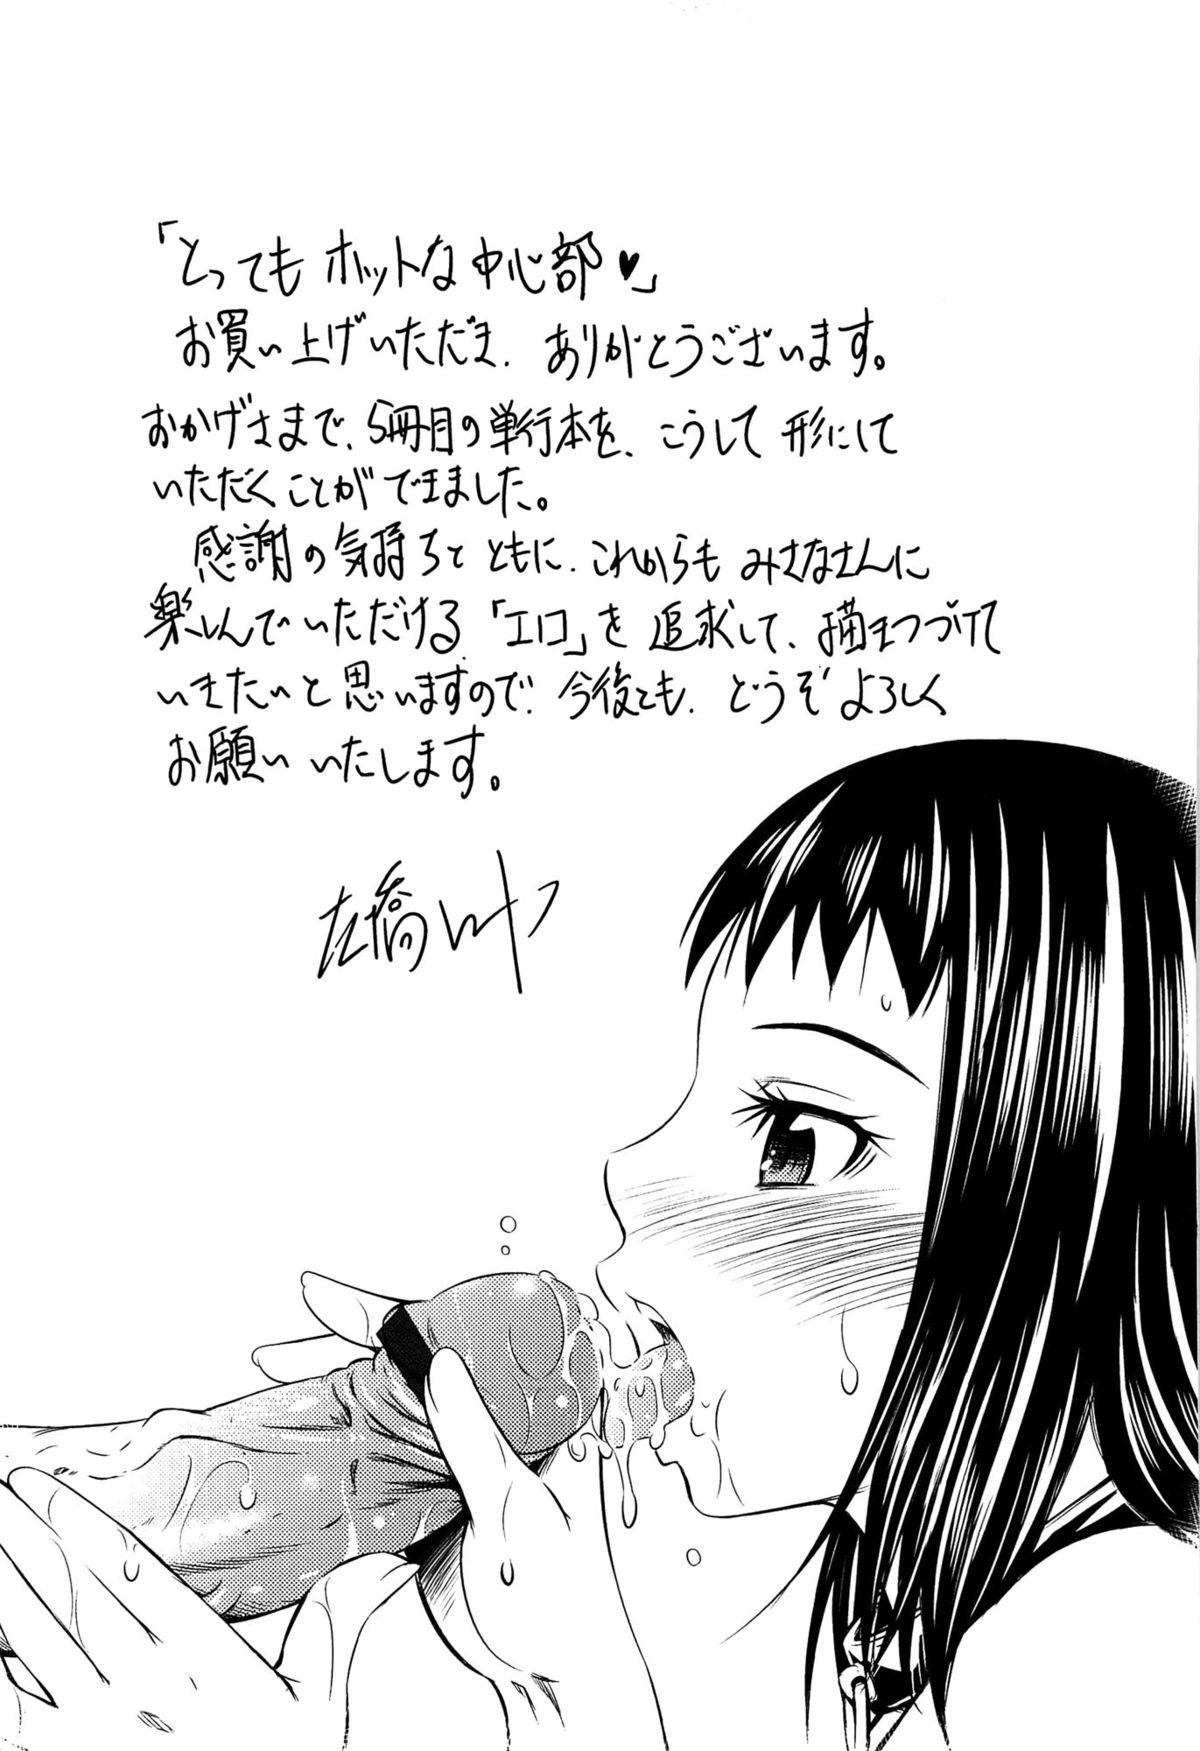 「とっても ホットな中心部♥」
お買い上げいただき、ありがとうございます。
おかげさまで、5冊目の単行本を、こうして形にして
いただくことができました。
感謝の気持ちとともに、これからもみさなさんに
楽しんでいただける「エロ」を追求して、描きつづけて
いきたいと思いますので、今後とも、どうぞよろしく
お願いいたします。